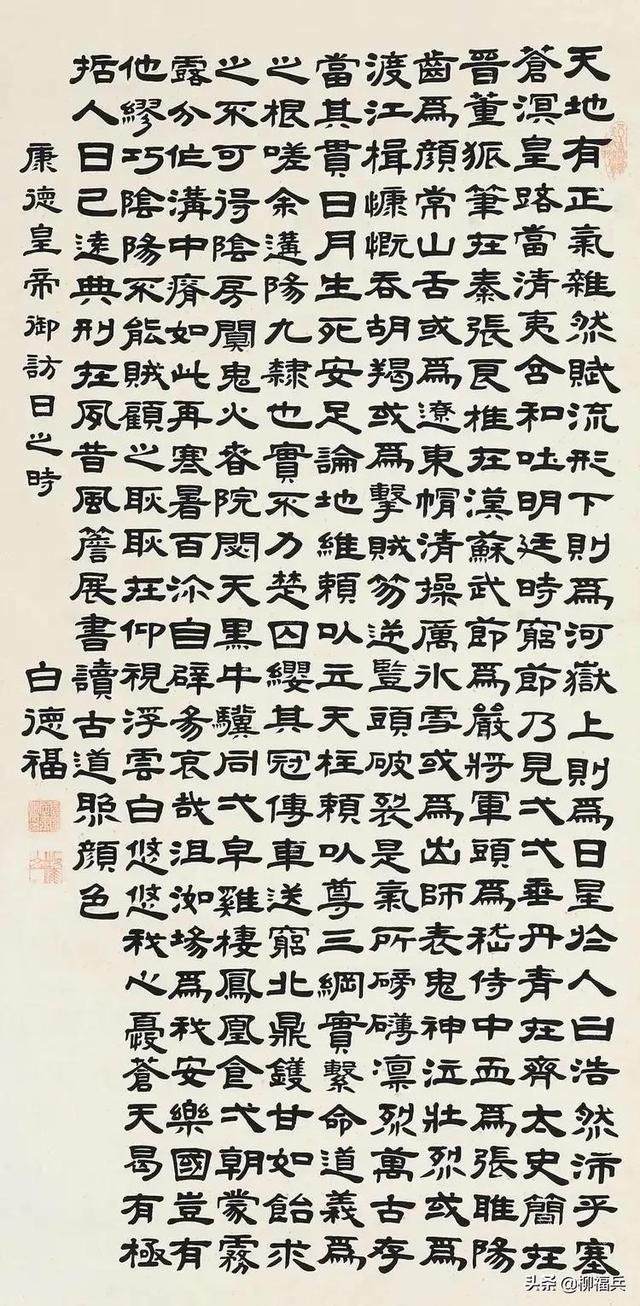 天地有正氣雜然賦流形下則為河嶽上則為日星於人曰浩然沛乎塞
蒼溟皇路當清夷含和吐明廷時窮節乃見弌弌垂丹青在齊太史簡在
晉董狐筆在秦張良椎在漢蘇武節為嚴將軍頭為嵇侍中血為張睢陽
齒為顏常山舌或為遼東帽清操厲冰雪或為出師表鬼神泣壯烈或為
渡江楫慷慨吞胡羯或為擊賊笏逆豎頭破裂是氣所磅礴凜烈萬古存
當其貫日月生死安足論地維賴以立天柱賴以尊三綱實繫命道義為
之根嗟余遘陽九隸也實不力楚囚纓其冠傳車送窮北鼎鑊甘如飴求
之不可得陰房闃鬼火春院閟天黑牛驥同弌皁雞棲鳳凰食弌朝蒙霧
露分作溝中瘠如此再寒暑百沴自辟易哀哉沮洳場為我安樂國豈有
他繆巧陰陽不能賊顧之耿耿在仰視浮雲白悠悠我心憂蒼天曷有極
哲人日已遠典刑在夙昔風簷展書讀古道照顏色
康德皇帝御訪日之時 白德福
头条 @柳福兵